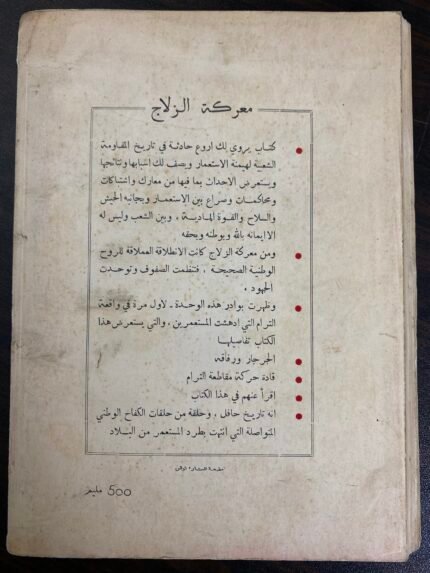 معركة الزلاج
كتاب يروي لك اروع حادثة في تاريخ المقاومة
الشعبية لهيمنة الاستعمار ويصف لك اسبابها ونتائجها
ويستعرض الاحداث بما فيها من معارك واشتباكات
ومحاكمات وصراع بين الاستعمار وبجانبه الجيش
والسلاح والقوة المادية ، وبين الشعب وليس له
الا ايمانه بالله وبوطنه وبحقه
ومن معركة الزلاج كانت الانطلاقة العملاقة للروح
الوطنية الصحيحة ، فتنظمت الصفوف وتوحدت
الجهود .
وظهرت بوادر هذه الوحدة ـ لاول مرة في واقعة
الترام التي ادهشت المستعمرين ، والتي يستعرض هذا
الكتاب تفاصيلها
الجرجار ورفاقه
قادة حركة مقاطعة الترام
اقرأ عنهم في هذا الكتاب
انه تاريخ حافل ، وحلقة من حلقات الكفاح الوطني
المتواصلة التي انتهت بطرد المستعمر من البلاد
500 مليم